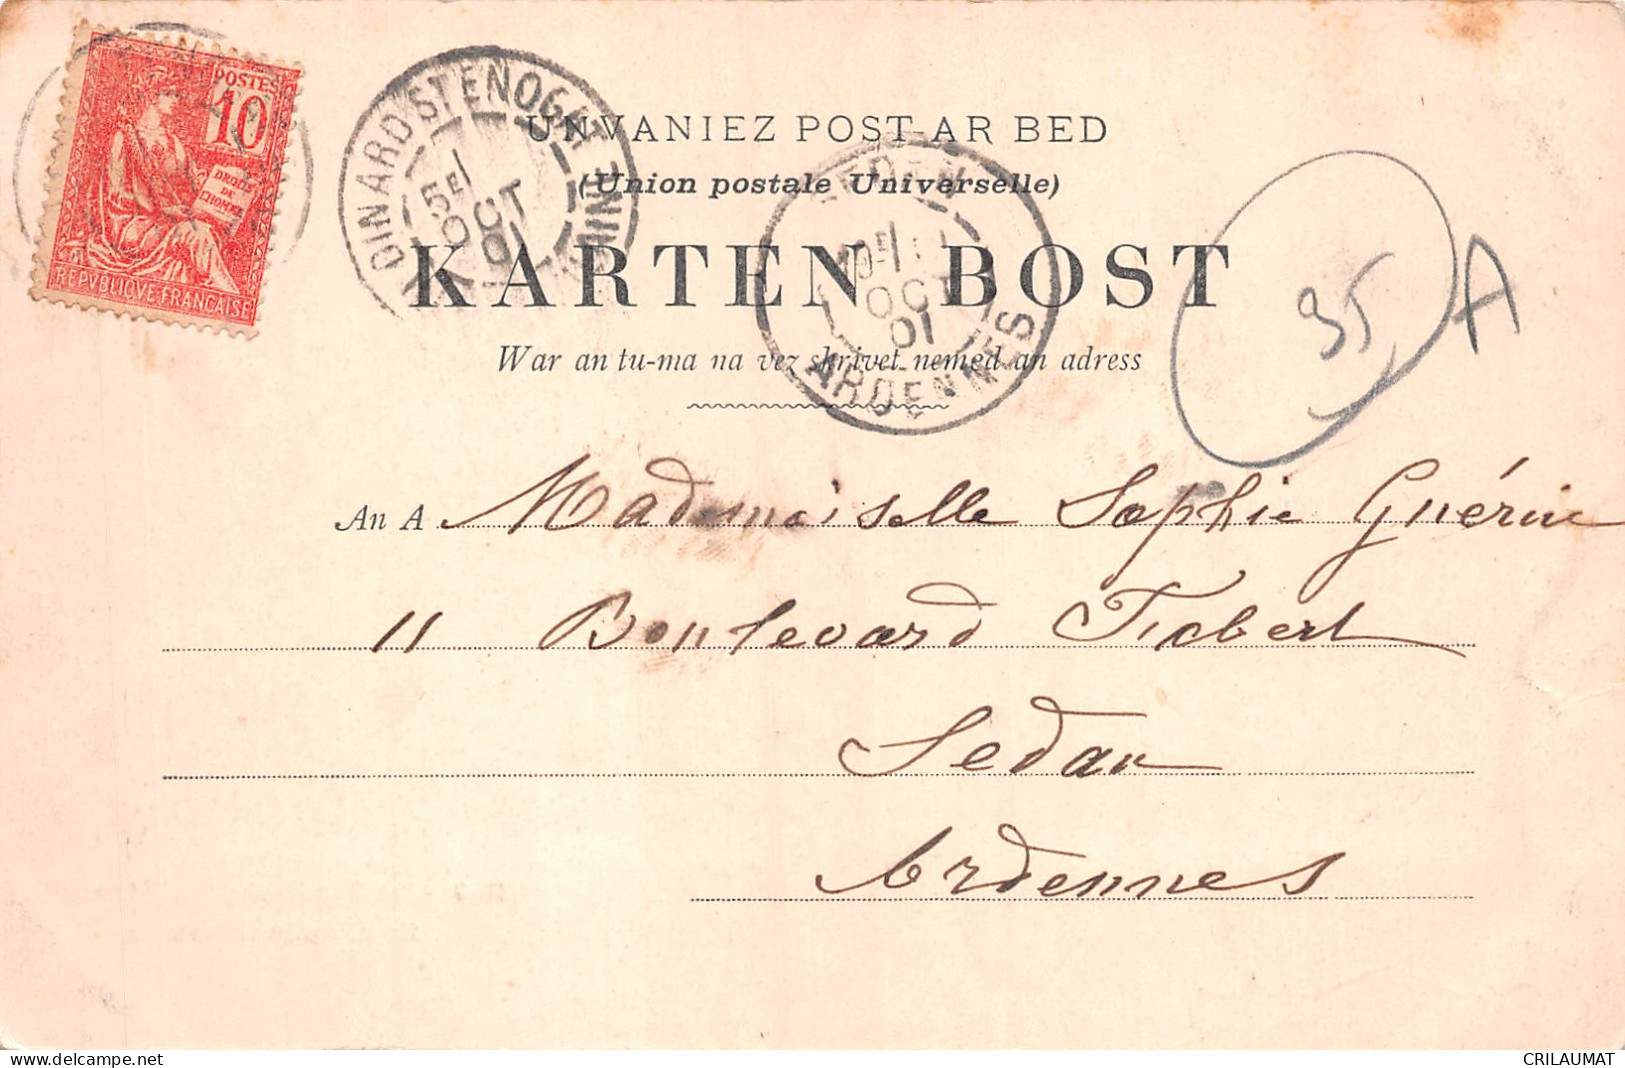 POSTES
10
DROITS
DE
L'HOMME
REPVBLIQVE FRANCAISE
DINARD ST ENOGAT
5E
OCT
01
UNVANIEZ POST-AR BED
(Union postale Universelle)
KARTEN BOST
OCT
01
ARDENNES
War an tu-ma na vez skrivet nemed an adress
35
A
An A Mademoiselle Sophie Guérin
11 Boulevard Fabert
Sedan
Ardennes
CRILAUMAT